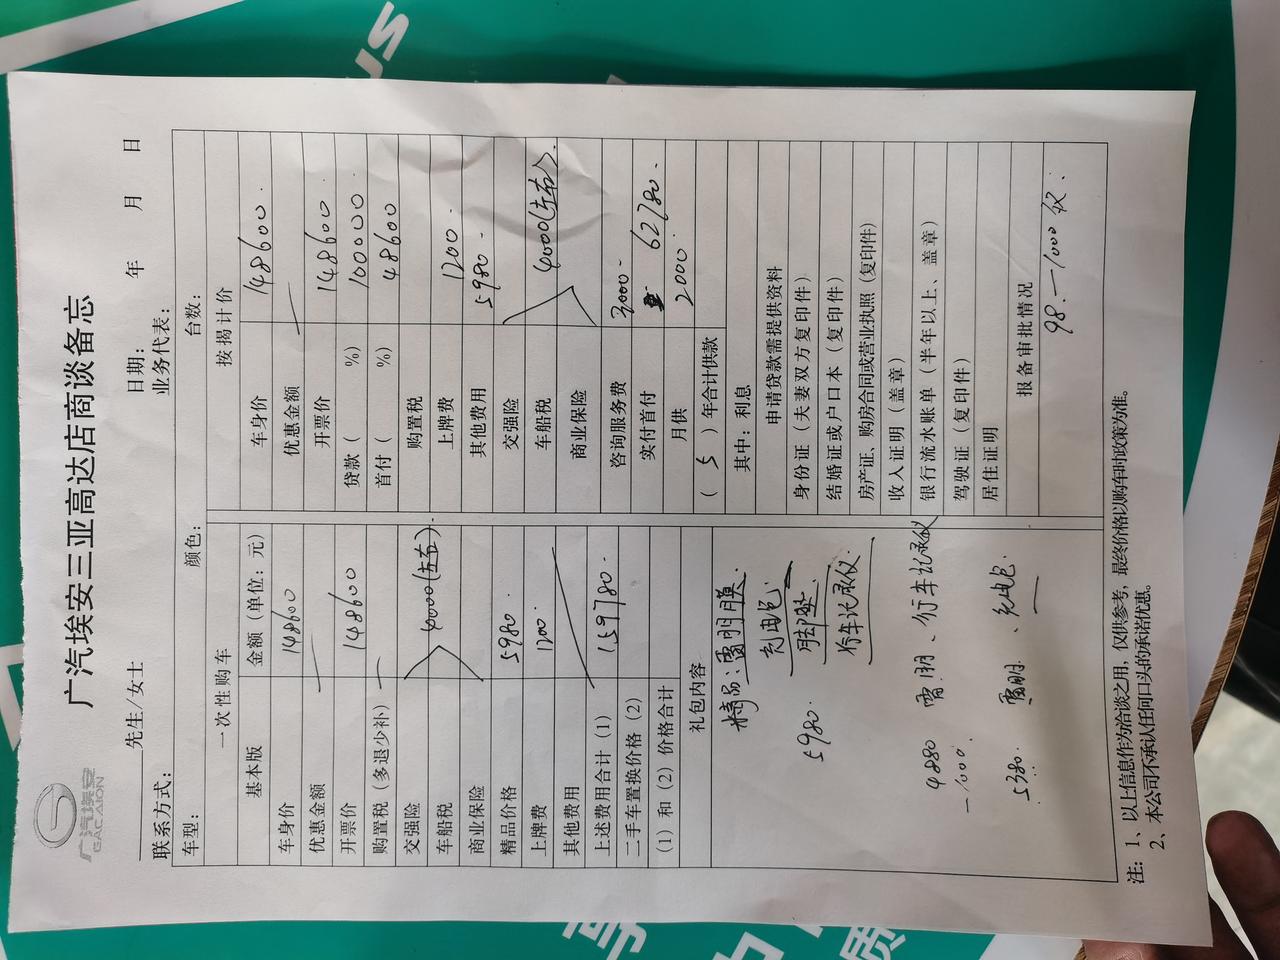 广汽埃安
GAC AION
广汽埃安三亚高达店商谈备忘
先生/女士 日期: 年 月 日
联系方式: 业务代表:
车型: 颜色: 台数:
一次性购车
基本版 金额（单位：元）
车身价 148600
优惠金额 —
开票价 148600
购置税（多退少补） —
交强险
车船税 4000(左右).
商业保险
精品价格 5980
上牌费 1200.
其他费用
上述费用合计（1） 159780.
二手车置换价格（2）
（1）和（2）价格合计
礼包内容
精品: 雷朋膜.
充电包
5980. 脚垫.
行车记录仪.
4880 雷朋、行车记录仪
-1000.
5380. 雷朋、充电包
按揭计价
车身价 148600.
优惠金额 —
开票价 148600
贷款（ %） 100000
首付（ %） 48600
购置税
上牌费 1200.
其他费用 5980.
交强险
车船税 4000(左右).
商业保险
咨询服务费 3000.
实付首付 62780.
月供 2000
（ 5 ）年合计供款
其中：利息
申请贷款需提供资料
身份证（夫妻双方复印件）
结婚证或户口本（复印件）
房产证、购房合同或营业执照（复印件）
收入证明（盖章）
银行流水账单（半年以上、盖章）
驾驶证（复印件）
居住证明
报备审批情况
98.-1000
注: 1、以上信息作为洽谈之用，仅供参考，最终价格以购车时政策为准。
2、本公司不承认任何口头的承诺优惠。